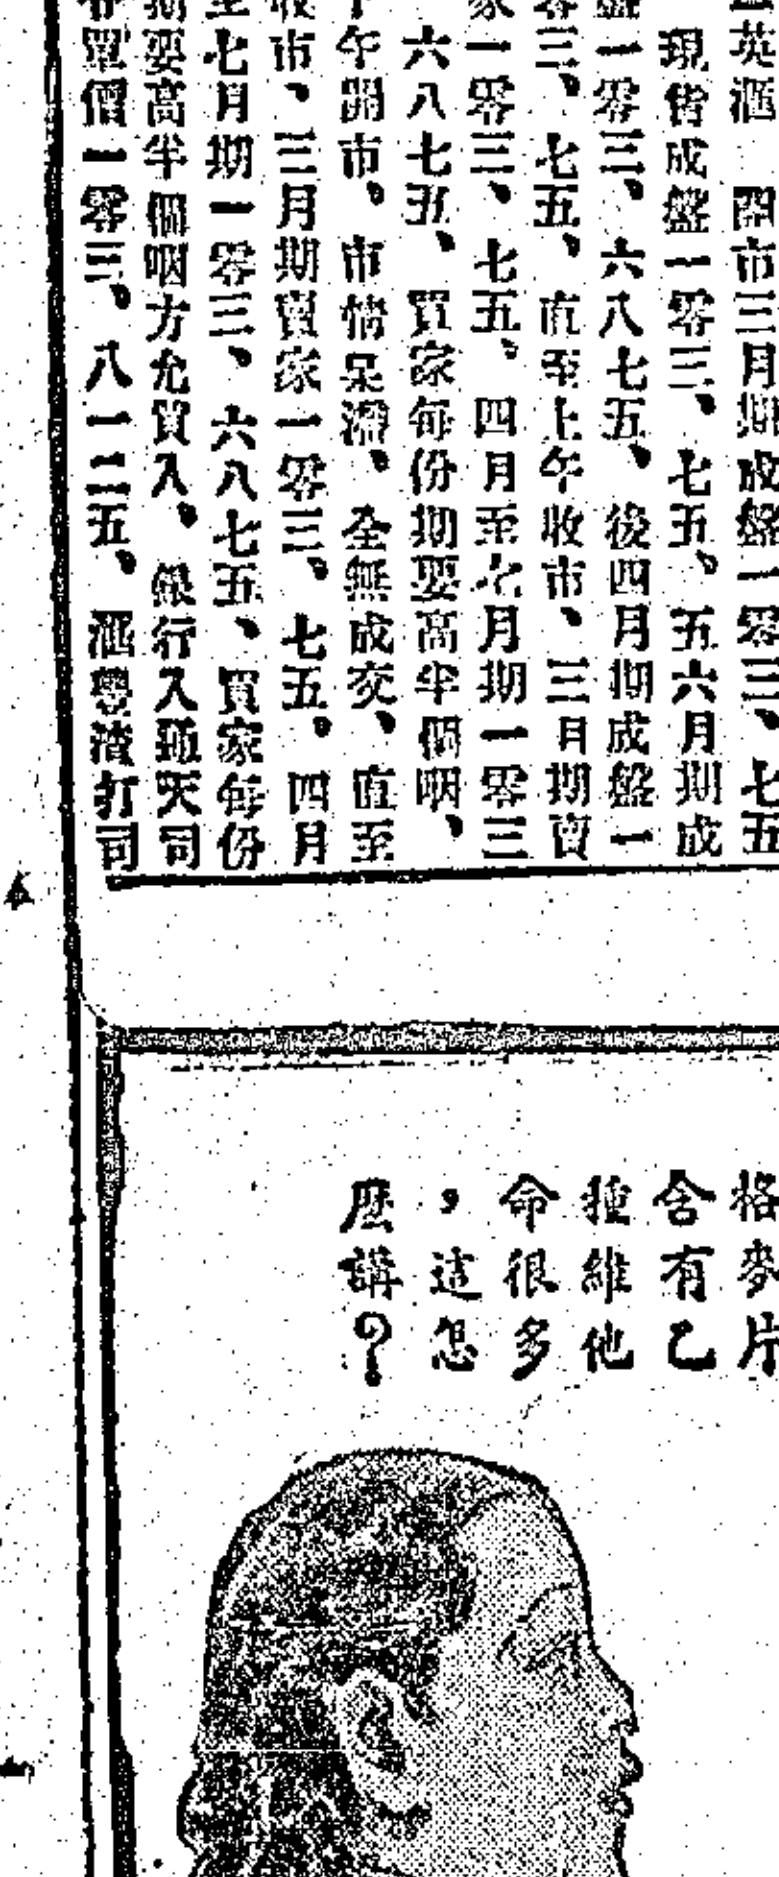 英滙　開市三月期成盤一零三、七五
現貨成盤一零三、七五、五六月期成
盤一零三、六八七五、後四月期成盤一
零三、七五、直至上午收市、三月期賣
家一零三、七五、四月至七月期一零三
六八七五、買家每份期要高半個呬、
午開市、市情呆滯、全無成交、直至
收市、三月期賣家一零三、七五、四月
至七月期一零三、六八七五、買家每份
期要高半個呬方允買入、銀行入通天司
單僧一零三、八一二五、滙豐渣打司
格麥片
含有乙
種維他
命很多
，這怎
麽講？